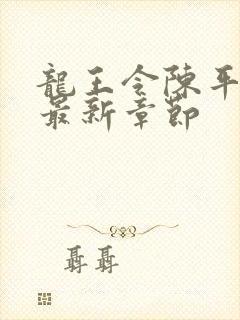 龍王令陳平
最新章節
聶聶